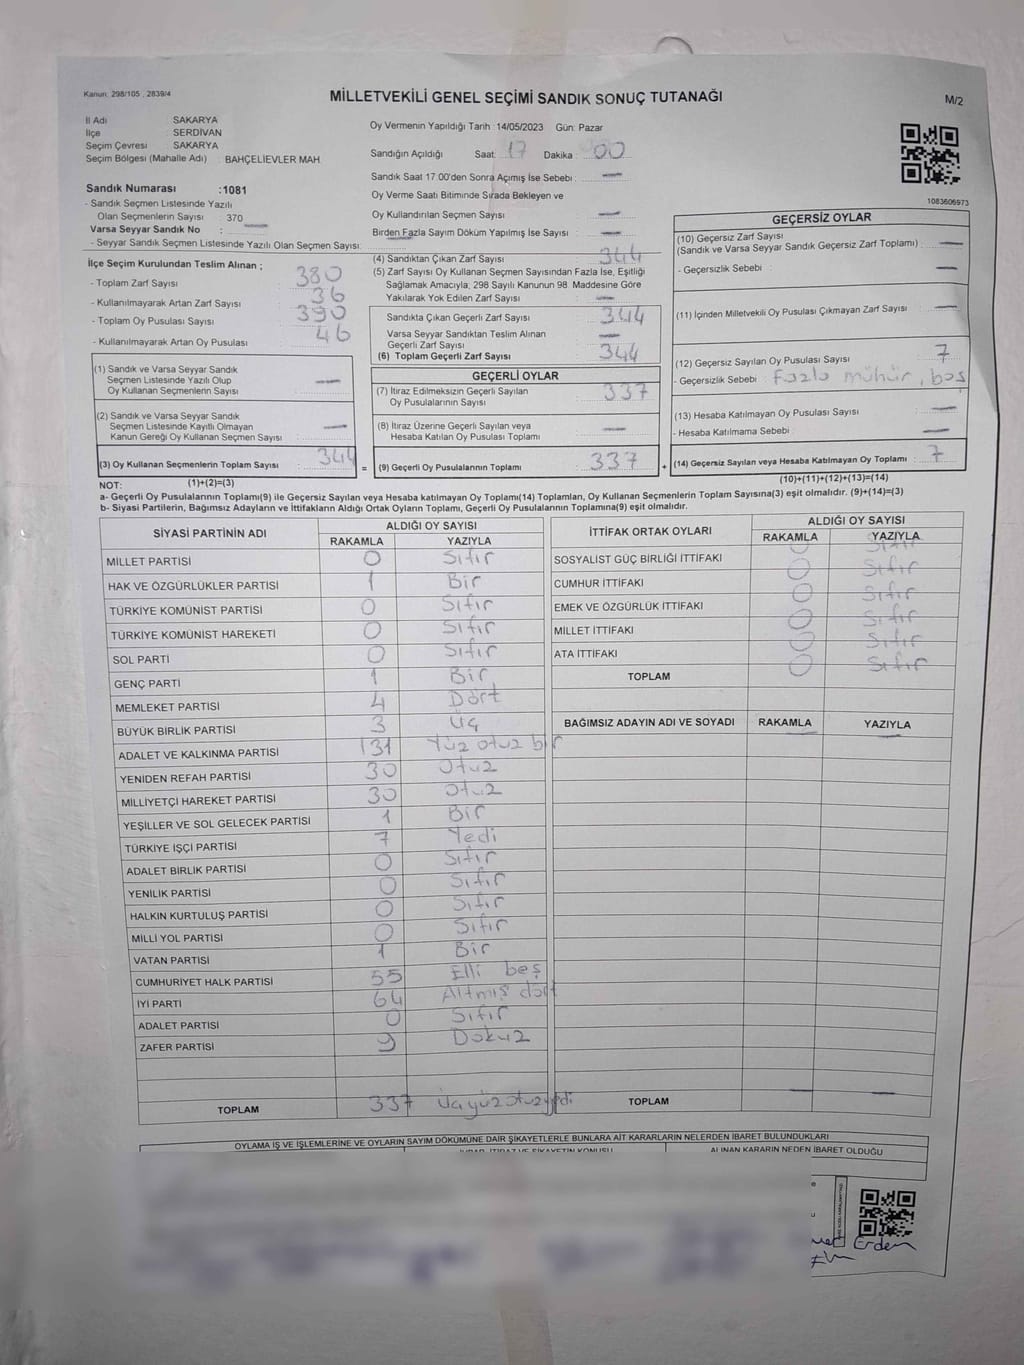 Kanun: 298/105 , 2839/4
MİLLETVEKİLİ GENEL SEÇİMİ SANDIK SONUÇ TUTANAĞI
M/2
İl Adı SAKARYA
İlçe : SERDİVAN
Seçim Çevresi : SAKARYA
Seçim Bölgesi (Mahalle Adı) : BAHÇELİEVLER MAH.
Oy Vermenin Yapıldığı Tarih :14/05/2023 Gün: Pazar
Sandığın Açıldığı Saat: 17 Dakika : 00
Sandık Saat 17:00'den Sonra Açımış İse Sebebi : —
Oy Verme Saati Bitiminde Sırada Bekleyen ve
Oy Kullandırılan Seçmen Sayısı : —
Birden Fazla Sayım Döküm Yapılmış İse Sayısı : —
1083606973
Sandık Numarası :1081
- Sandık Seçmen Listesinde Yazılı
Olan Seçmenlerin Sayısı : 370
Varsa Seyyar Sandık No : —
- Seyyar Sandık Seçmen Listesinde Yazılı Olan Seçmen Sayısı: —
İlçe Seçim Kurulundan Teslim Alınan ;
- Toplam Zarf Sayısı : 380
- Kullanılmayarak Artan Zarf Sayısı : 36
- Toplam Oy Pusulası Sayısı : 390
- Kullanılmayarak Artan Oy Pusulası : 46
(1) Sandık ve Varsa Seyyar Sandık
Seçmen Listesinde Yazılı Olup
Oy Kullanan Seçmenlerin Sayısı : —
(2) Sandık ve Varsa Seyyar Sandık
Seçmen Listesinde Kayıtlı Olmayan
Kanun Gereği Oy Kullanan Seçmen Sayısı : —
(3) Oy Kullanan Seçmenlerin Toplam Sayısı : 344
(4) Sandıktan Çıkan Zarf Sayısı : 344
(5) Zarf Sayısı Oy Kullanan Seçmen Sayısından Fazla İse, Eşitliği
Sağlamak Amacıyla; 298 Sayılı Kanunun 98. Maddesine Göre
Yakılarak Yok Edilen Zarf Sayısı : —
Sandıkta Çıkan Geçerli Zarf Sayısı : 344
Varsa Seyyar Sandıktan Teslim Alınan
Geçerli Zarf Sayısı : —
(6) Toplam Geçerli Zarf Sayısı : 344
GEÇERLİ OYLAR
(7) İtiraz Edilmeksizin Geçerli Sayılan
Oy Pusulalarının Sayısı : 337
(8) İtiraz Üzerine Geçerli Sayılan veya
Hesaba Katılan Oy Pusulası Toplamı : —
= (9) Geçerli Oy Pusulalarının Toplamı : 337
GEÇERSİZ OYLAR
(10) Geçersiz Zarf Sayısı
(Sandık ve Varsa Seyyar Sandık Geçersiz Zarf Toplamı) : —
- Geçersizlik Sebebi : —
(11) İçinden Milletvekili Oy Pusulası Çıkmayan Zarf Sayısı : —
(12) Geçersiz Sayılan Oy Pusulası Sayısı : 7
- Geçersizlik Sebebi : Fazla mühür, boş
(13) Hesaba Katılmayan Oy Pusulası Sayısı : —
- Hesaba Katılmama Sebebi : —
+ (14) Geçersiz Sayılan veya Hesaba Katılmayan Oy Toplamı : 7
NOT: (1)+(2)=(3)
(10)+(11)+(12)+(13)=(14)
a- Geçerli Oy Pusulalarının Toplamı(9) ile Geçersiz Sayılan veya Hesaba katılmayan Oy Toplamı(14) Toplamları, Oy Kullanan Seçmenlerin Toplam Sayısına(3) eşit olmalıdır. (9)+(14)=(3)
b- Siyasi Partilerin, Bağımsız Adayların ve İttifakların Aldığı Ortak Oyların Toplamı, Geçerli Oy Pusulalarının Toplamına(9) eşit olmalıdır.
SİYASİ PARTİNİN ADI ALDIĞI OY SAYISI
RAKAMLA YAZIYLA
MİLLET PARTİSİ 0 Sıfır
HAK VE ÖZGÜRLÜKLER PARTİSİ 1 Bir
TÜRKİYE KOMÜNİST PARTİSİ 0 Sıfır
TÜRKİYE KOMÜNİST HAREKETİ 0 Sıfır
SOL PARTİ 0 Sıfır
GENÇ PARTİ 1 Bir
MEMLEKET PARTİSİ 4 Dört
BÜYÜK BİRLİK PARTİSİ 3 Üç
ADALET VE KALKINMA PARTİSİ 131 Yüz otuz bir
YENİDEN REFAH PARTİSİ 30 Otuz
MİLLİYETÇİ HAREKET PARTİSİ 30 Otuz
YEŞİLLER VE SOL GELECEK PARTİSİ 1 Bir
TÜRKİYE İŞÇİ PARTİSİ 7 Yedi
ADALET BİRLİK PARTİSİ 0 Sıfır
YENİLİK PARTİSİ 0 Sıfır
HALKIN KURTULUŞ PARTİSİ 0 Sıfır
MİLLİ YOL PARTİSİ 0 Sıfır
VATAN PARTİSİ 1 Bir
CUMHURİYET HALK PARTİSİ 55 Elli beş
İYİ PARTİ 64 Altmış dört
ADALET PARTİSİ 0 Sıfır
ZAFER PARTİSİ 9 Dokuz
TOPLAM 337 Üçyüzotuzyedi
İTTİFAK ORTAK OYLARI ALDIĞI OY SAYISI
RAKAMLA YAZIYLA
0 Sıfır
SOSYALİST GÜÇ BİRLİĞİ İTTİFAKI 0 Sıfır
CUMHUR İTTİFAKI 0 Sıfır
EMEK VE ÖZGÜRLÜK İTTİFAKI 0 Sıfır
MİLLET İTTİFAKI 0 Sıfır
ATA İTTİFAKI 0 Sıfır
TOPLAM
BAĞIMSIZ ADAYIN ADI VE SOYADI RAKAMLA YAZIYLA
— —
TOPLAM — —
OYLAMA İŞ VE İŞLEMLERİNE VE OYLARIN SAYIM DÖKÜMÜNE DAİR ŞİKAYETLERLE BUNLARA AİT KARARLARIN NELERDEN İBARET BULUNDUKLARI
ALINAN KARARIN NEDEN İBARET OLDUĞU
Erdem